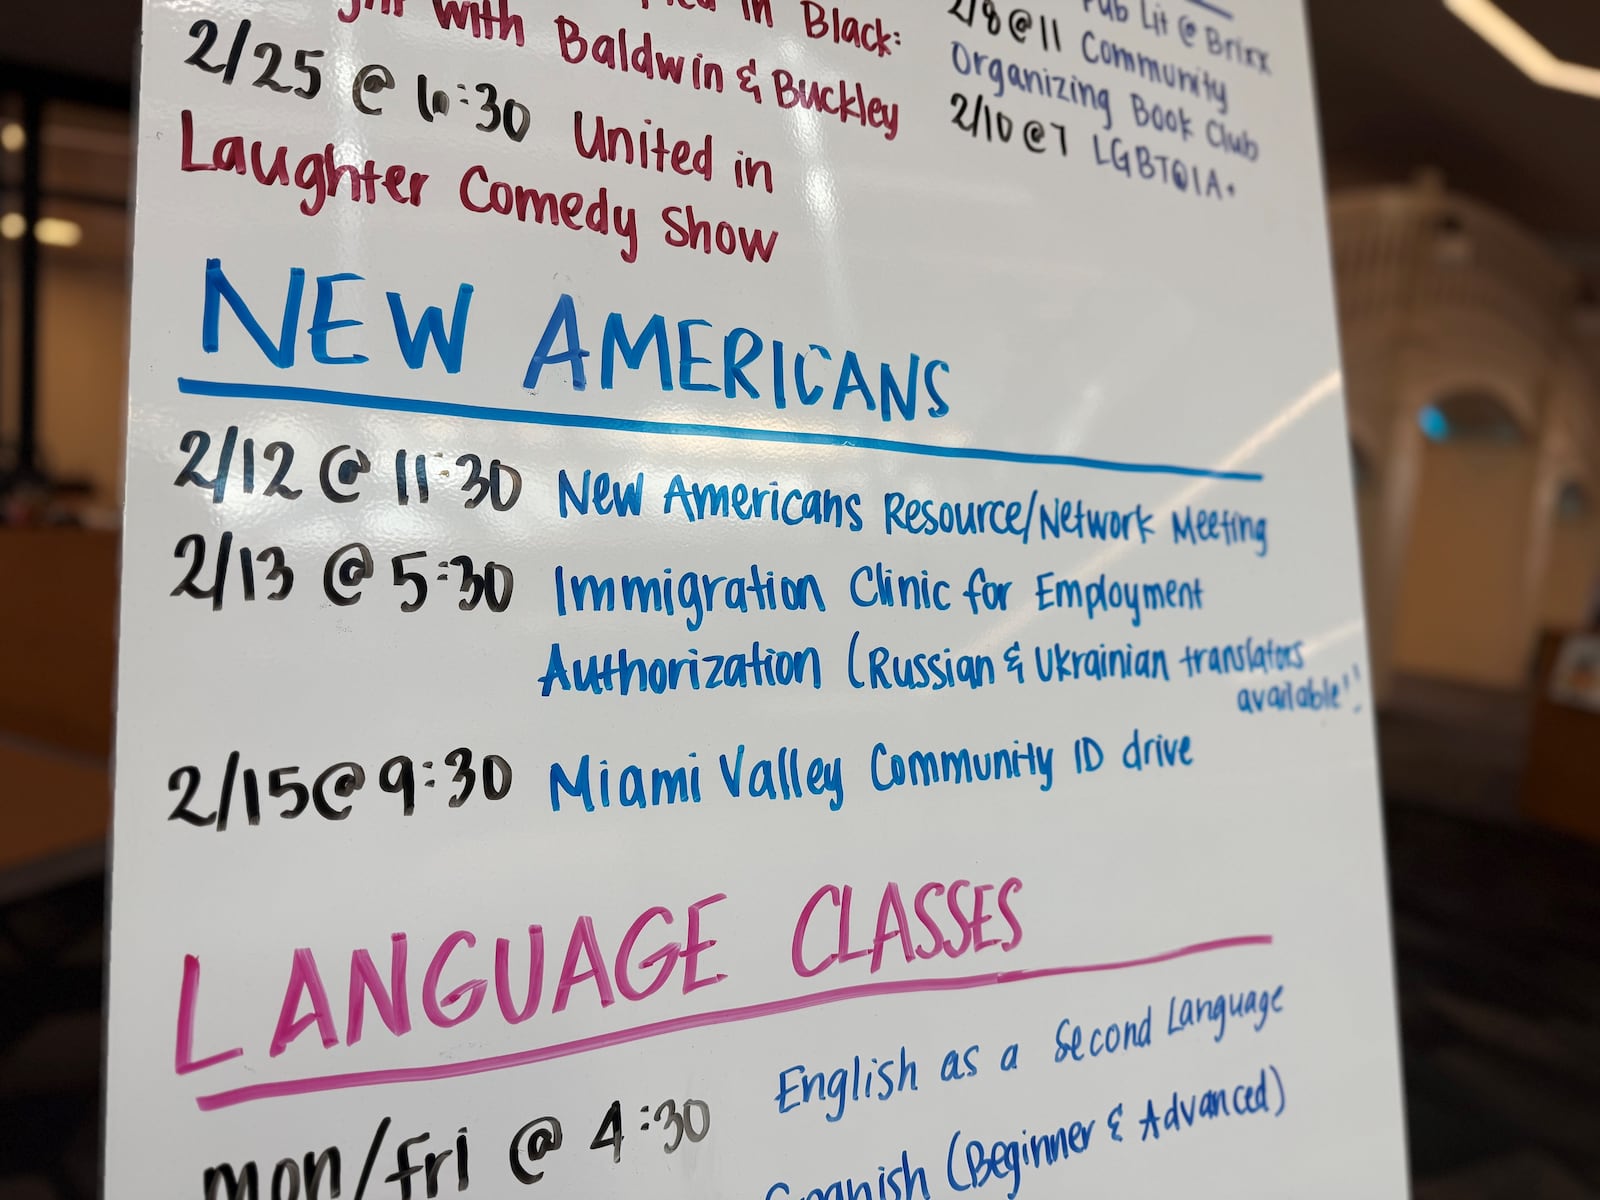 in Black:
with Baldwin & Buckley
2/25 @ 6:30 United in
Laughter Comedy Show
Pub Lit @ Brixx
2/8 @ 11 Community
Organizing Book Club
2/10 @ 7 LGBTQIA+
NEW AMERICANS
2/12 @ 11:30 New Americans Resource/Network Meeting
2/13 @ 5:30 Immigration Clinic for Employment
Authorization (Russian & Ukrainian translators
available!!
2/15 @ 9:30 Miami Valley Community ID drive
LANGUAGE CLASSES
English as a Second Language
mon/fri @ 4:30
Spanish (Beginner & Advanced)